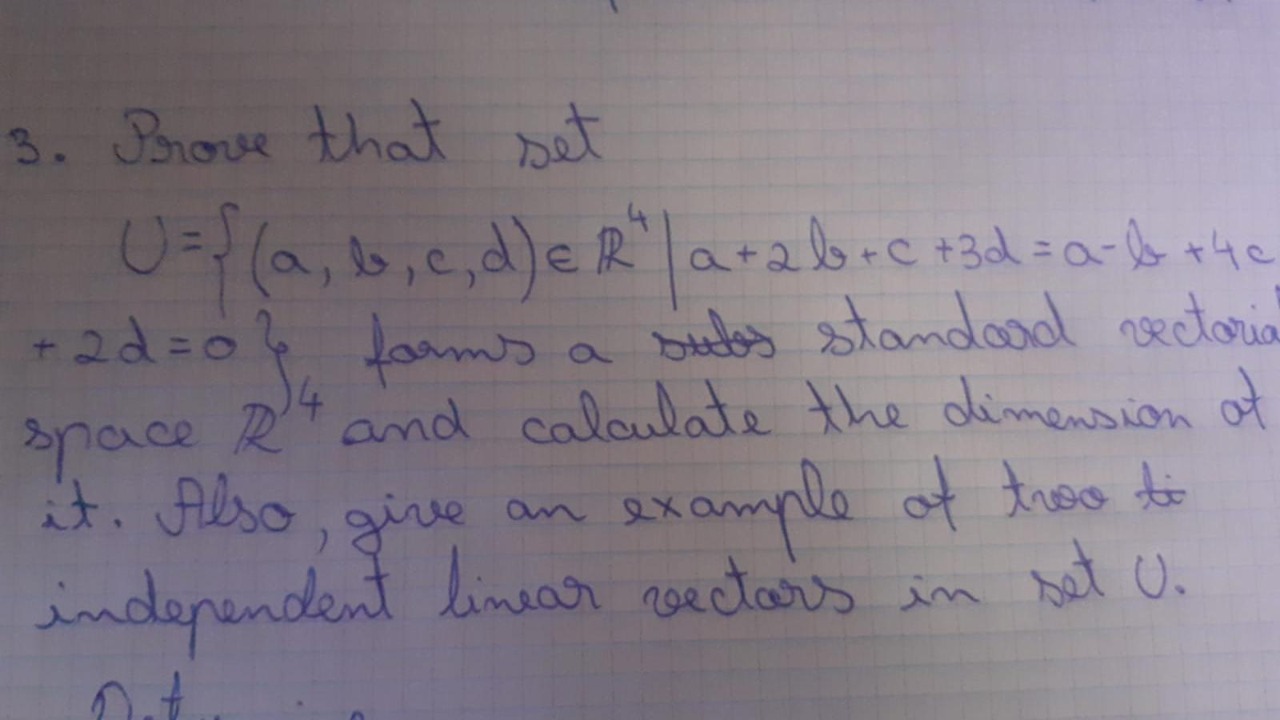 3. Prove that set
U={(a, b, c, d) ∈ ℝ⁴ | a+2b+c+3d=a-b+4c
+2d=0} forms a standard vectoria
space ℝ⁴ and calculate the dimension of
it. Also, give an example of two
independent linear vectors in set U.